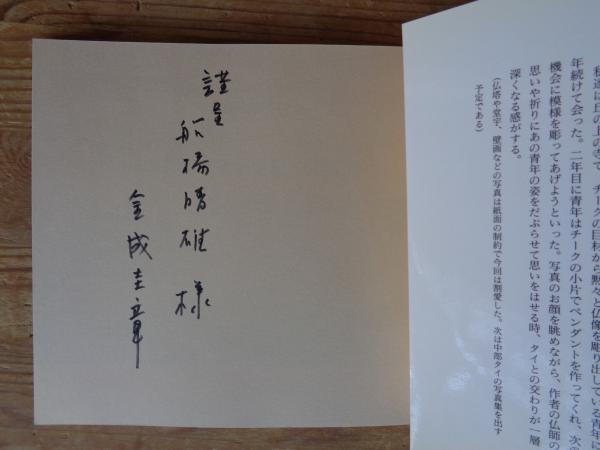 謹呈
船橋晴雄 様
金成圭章
私達に丘の上の寺で、チークの目材から黙々と仏像を彫り出している青年に
年続けて会った。二年目に青年はチークの小片でペンダントを作ってくれ、次の
機会に模様を彫ってあげようといった。写真のお顔を眺めながら、作者の仏師の
思いや祈りにあの青年の姿をだぶらせて思いをはせる時、タイとの交わりが一層
深くなる感がする。
(仏塔や堂宇、壁画などの写真は紙面の制約で今回は割愛した。次は中部タイの写真集を出す
予定である)